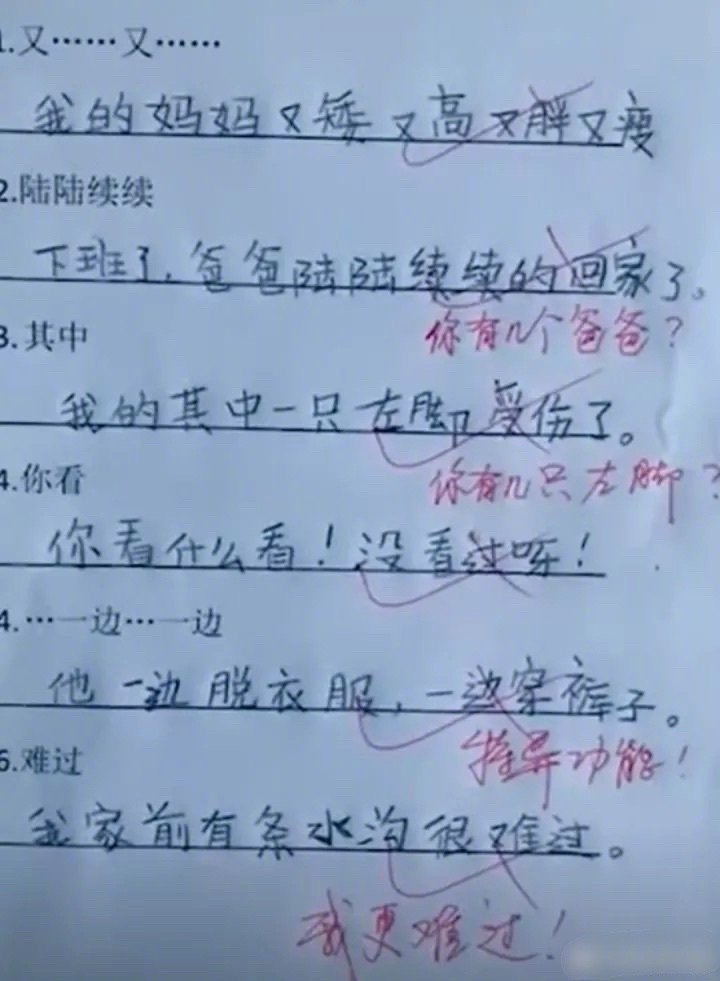 1.又……又……
我的妈妈又矮又高又胖又瘦
2.陆陆续续
下班了,爸爸陆陆续续的回家了。
你有几个爸爸?
3.其中
我的其中一只左脚受伤了。
你有几只左脚?
4.你看
你看什么看!没看过呀!
4.…一边…一边
他一边脱衣服,一边穿裤子。
特异功能!
6.难过
我家前有条水沟很难过。
我更难过!